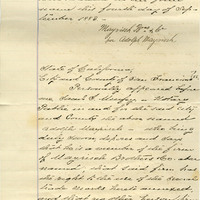 and this fourth day of Sep-
tember 1886
Mayrisch Bros & Co
per Adolph Mayrisch
State of California,
City and County of San Francisco } ss.
Personally appeared before
me, a Notary
Public in and for the said City
and County the above named
Adolph Mayrisch who being
duly sworn deposes and says
that he is a member of the firm
of Mayrisch Brothers & Co. above
named, that said firm has
the right to the use of the
Trade Mark
and that no other